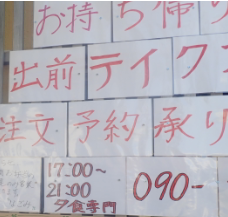 お持ち帰り
出前テイク
注文予約承り
17:00~
21:00
夕食専門
090-